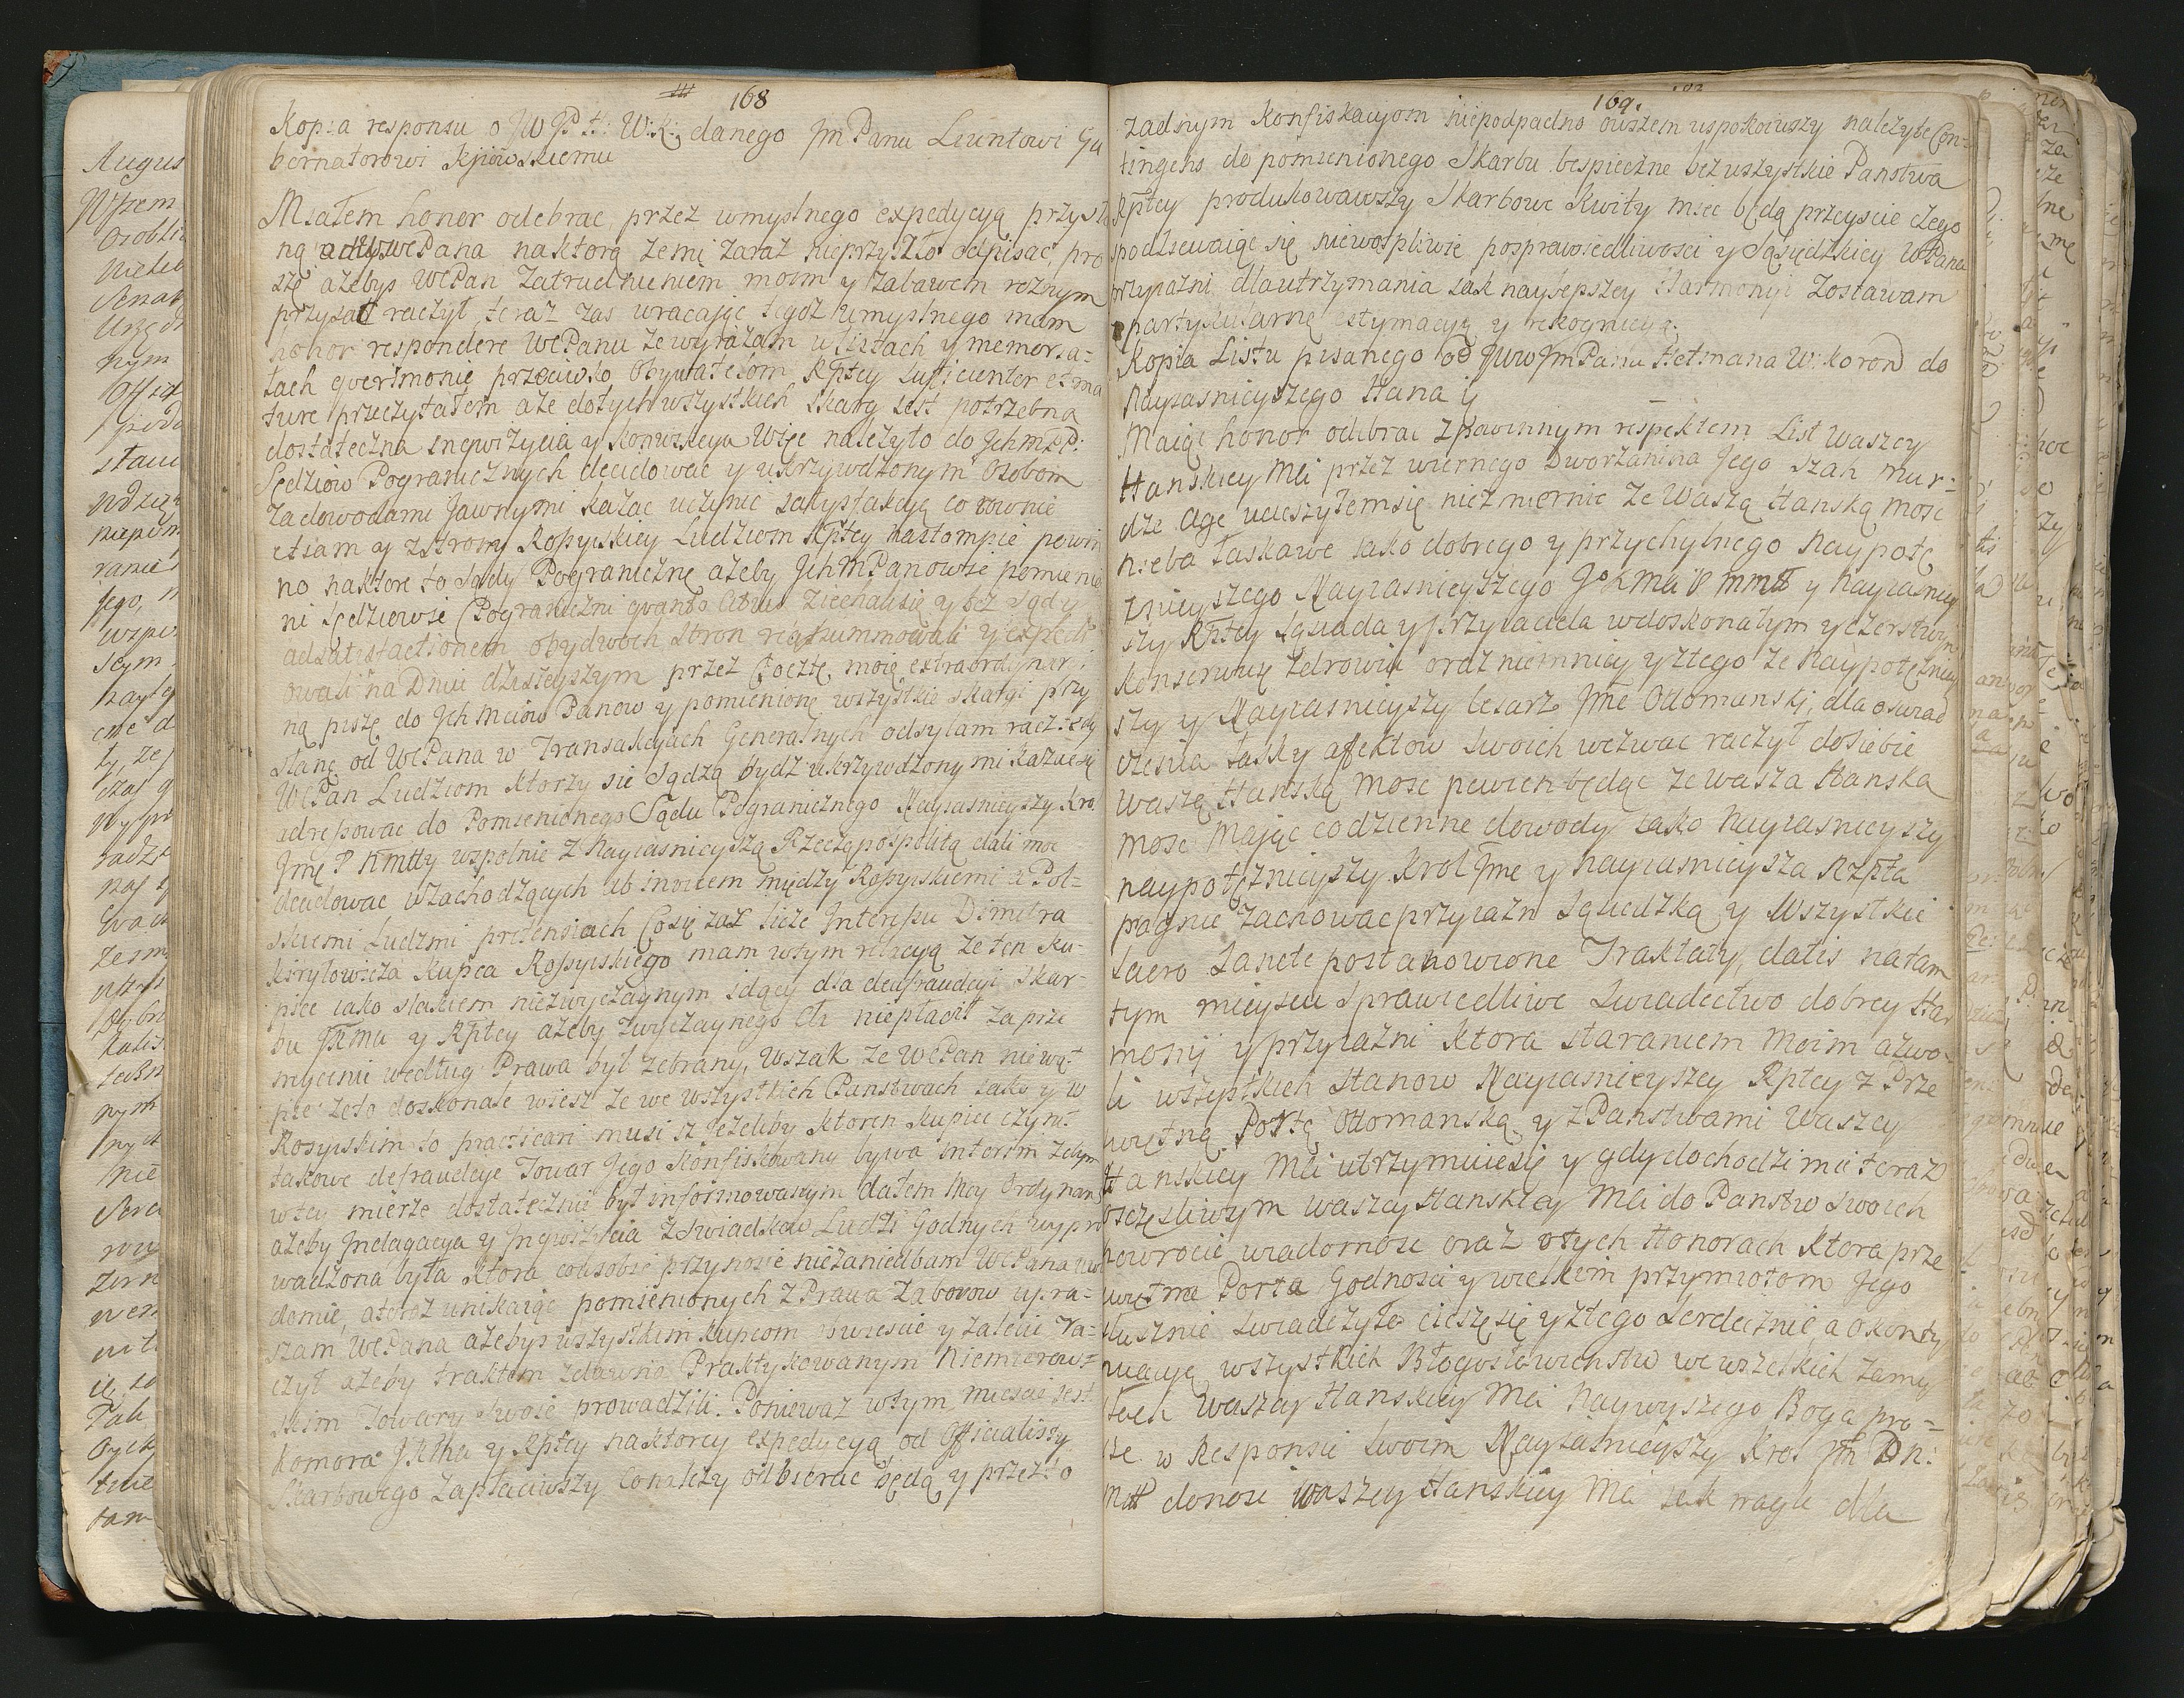 168
Kopia responsu o JWJP H: W: K: danego Jm Panu Leuntowi Gu
bernatorowi Kjiowskiemu
Miałem honor odebrac przez umyslnego expedycyą przysła
ną WcPana na ktorą ze mi zaraz nieprzyszło odpisac, pro
szę ażebys WcPan zatrudnieniem moim y zabawem roznym
przysac raczył, teraz zas wracając tegoż umyslnego mam
honor respondere WcPanu ze wyrażam w listach y memorya=
łach qverimonię przeciwko Obywatelom Rptey sufficienter et ma
ture przeczytałem ale do tych wszystkich skarg iest potrzebna
dostateczna inqwizycia y konwikcya Więc należyto do Ichm PP:
Sędziow Pogranicznych decidowac y ukrzywdzonym Osobom
za dowodami Jawnymi kazac uczynic satysfakcyą co rownie
etiam y z strony Rossyiskiey Ludziom Rptey nastompic powin
no na ktore to sądy Pograniczne ażeby IchmPanowie pomienie
ni sędziowie Pograniczni qvanto citius ziechalisię y też sądy
ad satisfactionem obydwoch stron reassummowali y expedi
owali na Dniu dzisieyszym przez Pocztę moię extraordynar i
ną piszę do Ich Mciow Panow y pomienione wszystkie skargi przy
słanę od WcPana w Transakcyach Generalnych odsyłam racz tedy
WcPan Ludziom ktorzy się sądzą bydz ukrzywdzonymi kazac się
adressowac do Pomienionego Sądu Pogranicznego Nayiasnieyszy Kro.
Jmę P Nmtty wspolnie z Nayiasnieyszą Rzecząpospolitą dali moc
decidowac w zachodzących ab invicem między Rossyiskiemi a Pol=
skiemi Ludzmi pretensiach Co się zas ticze Interessu Dimitra
Kiryłowicza Kupca Rossyiskiego mam w tym relacyą ze ten Ku-
piec iako szlakiem niezwyczaynym idący dla defraudacyi skar-
bu JKMci y Rptey ażeby zwyczaynego cła niepłacił za prze
swięcenie według Prawa był zebrany, wszak ze WcPan niewąt
pię zeto doskonale wiesz ze we wszystkich Panstwach iako y w
Rosyiskim to practicari musi iż jeżeliby ktoren kupiec czynił
takowe defraudcye Towar Jego skonfiskowany bywa interim zebym
w tey mierze dostatecznie był informowanym dałem moy Ordynans
ażeby Indagacya y Inqwizycia z swiadkow Ludzi Godnych wypro
wadzona była ktora co w sobie przyniesie niezaniedbam WcPana uwia
domic, a teraz unikaiąc pomienionych z Prawa zaborow upra=
szam WcPana ażebys wszystkim kupcom obwiescic y zalecic ra=
czył ażeby traktem zdawna Praktykowanym Niemierows=
skim Towary swoie prowadzili. Ponieważ w tym miescie iest
Komora JKMci y Rptey na ktorey expedycyą od Officialisty
Skarbowego zapłaciwszy co należy odbierac będą y przez to
169.
zadnym Konfiskacyom niepodpadno owszem uspokoiwszy należyte Con=
tingens do pomienionego Skarbu bespieczne bez wszystkie Panstwa
Rptey produkowawszy Skarbowe Kwity miec będą przeyscie czego
spodziewaiąc się niewospliwie po sprawiedliwosci y Sąsiedzkiey WcPana
przyiazni dla utrzymania iak naylepszey Harmonyi zostawam
z partykularnę estymacyą y rekognicyą.
Kopia Listu pisanego od JWW Jm Pana Hetmana W: Koron do
Nayiasnieyszego Hana
Maiąc honor odebrac z powinnym respektem List Waszey
Hanskiey Mci przez wiernego Dworzanina Jego Szah Mur=
dze Agę ucieszyłem się niezmiernie ze Waszą Hanską mosc
nieba łaskawe iako dobrego y przychylnego Naypotę
znieyszego Nayiasnieyszego JoKMci P mmtt y Nayiasniey
szy Rptey sąsiada y przyiaciela w doskonałym y czerstwym
konserwuię zdrowiu oraz niemniey y z tego ze Naypotężniey
szy y Nayiasnieyszy Cesarz Jme Ottomanski, dla oswiad
czenia łasky affektow swoich wezwac raczył do siebie
Waszą Hanską mosc pewien będąc ze Wasza Hanska
mosc maiąc codzienne dowody iako Nayiasnieyszy
naypotężnieyszy Krol Jme y nayiasnieysza Rzpta
pragnie zachowac przyiazn sąsiedzką y wszystkie
sacro sancte postanowione Traktaty, dałeś na tam
tym mieyscu sprawiedliwe swiadectwo dobrey Har
monij y przyiazni ktora staraniem moim a zwo-
li wszystkich Stanow Nayiasnieyszey Rptey z Prze
swietną Portą Ottomanską y z Panstwami Waszey
Hanskiey Mci utrzymuie się y gdy dochodzi mie teraz
o szczęsliwym Waszey Hanskiey Mci do Panstw swoich
powrocie wiadomosc oraz o tych Honorach ktora prze
swietna Porta Godnosci y wielkim przymiotom Jego
słusznie swiadczyła cieszę się y z tego serdecznie, a o konty
nuacyą wszystkich Błogosławienstw we wszelkich zamy
słach Waszey Hanskiey Mci Naywyszego Boga pro=
szę w Responsie swoim Nayiasnieyszy Krol Jm Pn:
Mtt donosi Waszey Hanskiey Mci iak nagle dla